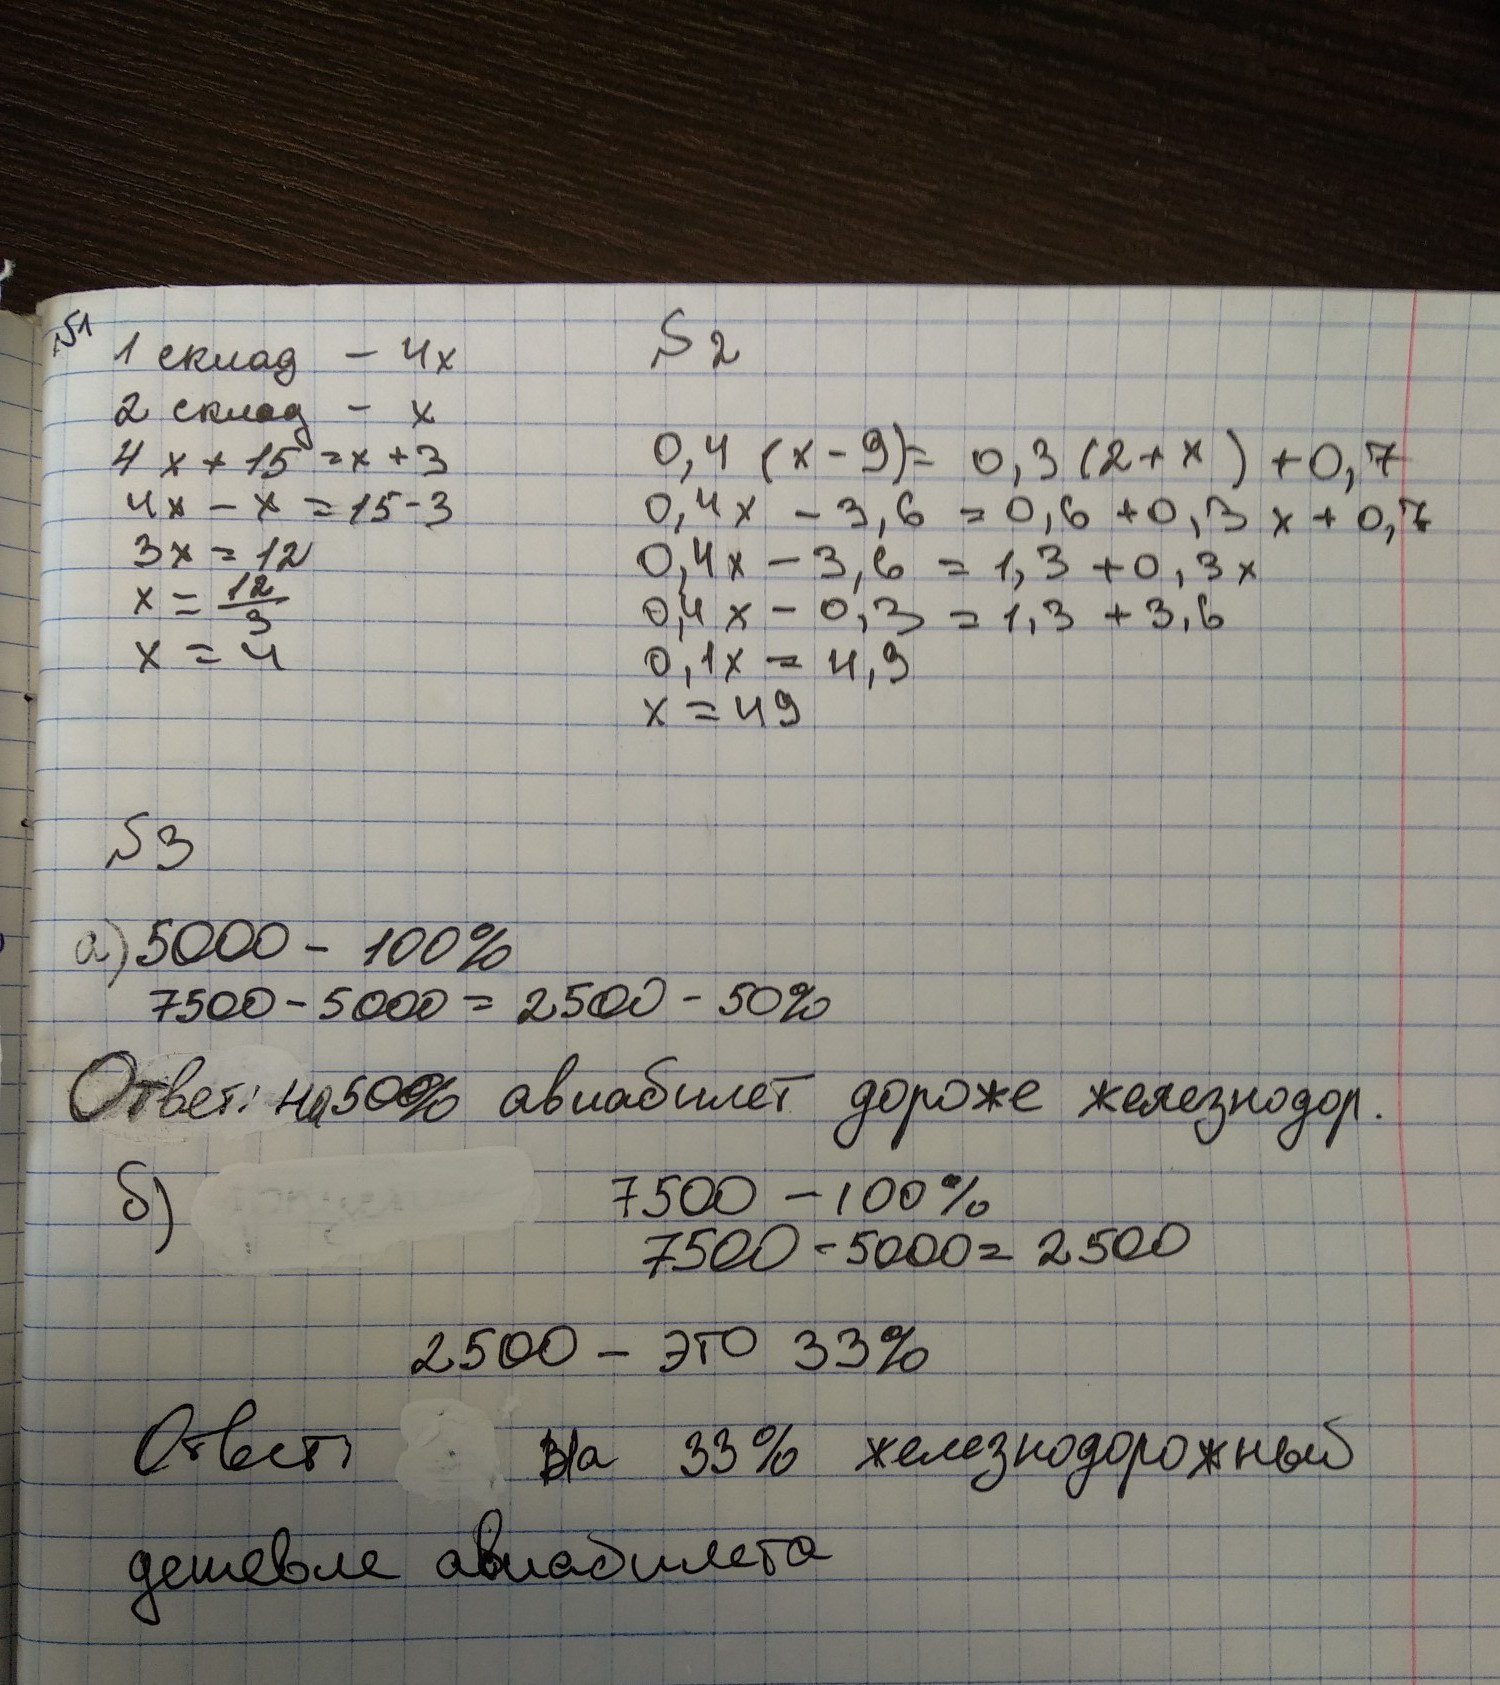 №1
1 склад – 4x
2 склад – x
4x + 15 = x + 3
4x – x = 15 - 3
3x = 12
x = 12/3
x = 4
№2
0,4 (x - 9) = 0,3 (2 + x) + 0,7
0,4x – 3,6 = 0,6 + 0,3x + 0,7
0,4x – 3,6 = 1,3 + 0,3x
0,4x – 0,3 = 1,3 + 3,6
0,1x = 4,9
x = 49
№3
а) 5000 – 100%
7500 – 5000 = 2500 – 50%
Ответ: на 50% авиабилет дороже железнодор.
б)
7500 – 100%
7500 - 5000 = 2500
2500 – это 33%
Ответ: на 33% железнодорожный
дешевле авиабилета